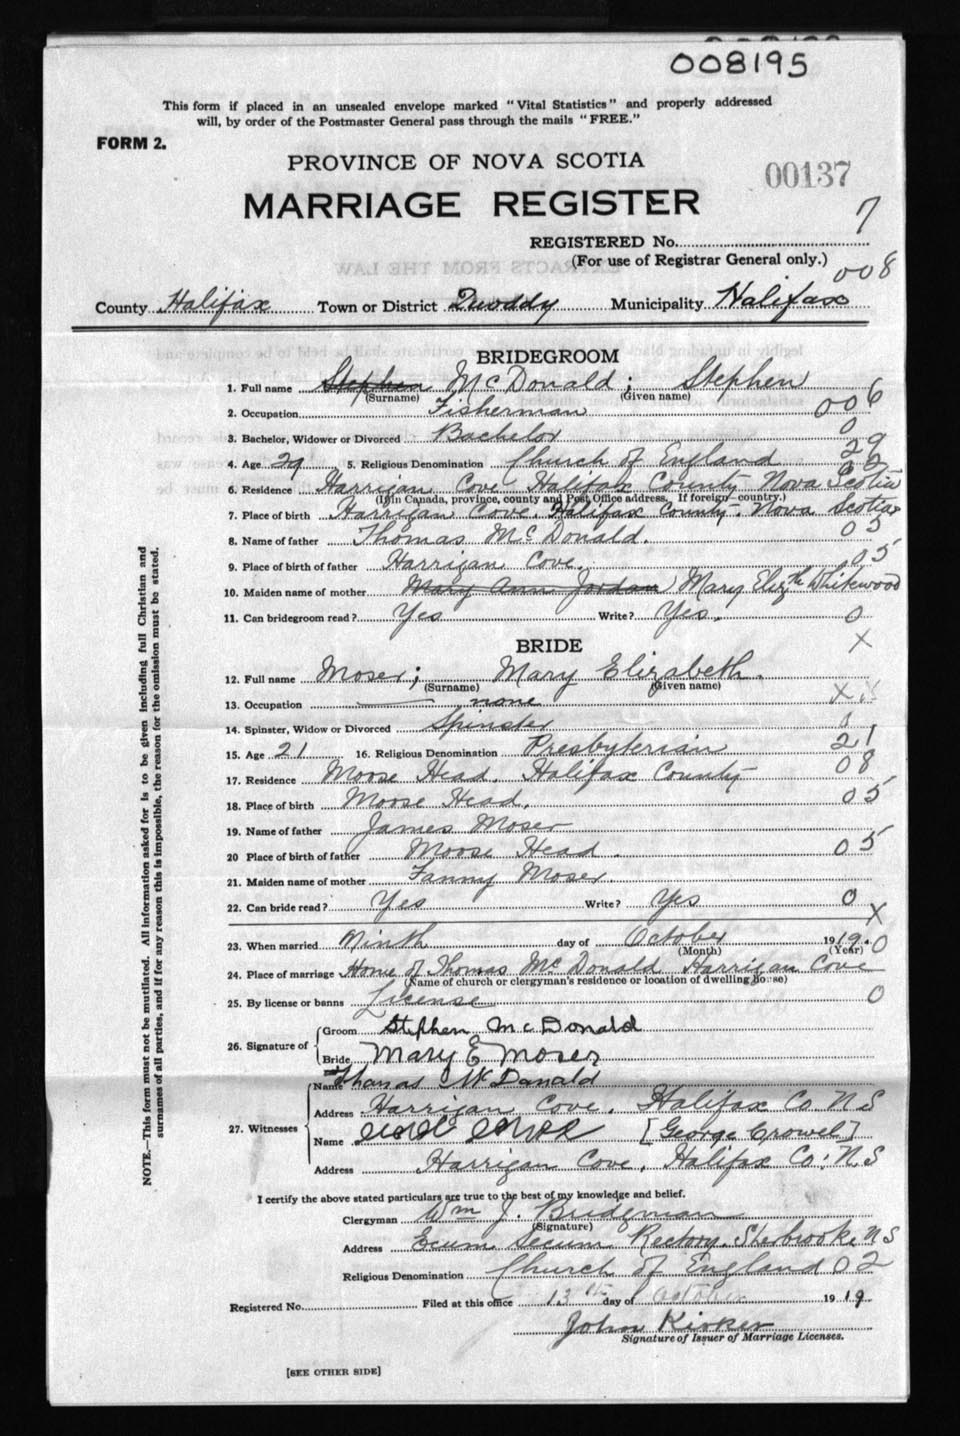 008195
This form if placed in an unsealed envelope marked "Vital Statistics" and properly addressed
will, by order of the Postmaster General pass through the mails "FREE."
FORM 2.
PROVINCE OF NOVA SCOTIA
00137
MARRIAGE REGISTER
7
REGISTERED No.
(For use of Registrar General only.)
008
County Halifax Town or District Quoddy Municipality Halifax
BRIDEGROOM
1. Full name Stephen McDonald; Stephen
(Surname) (Given name)
2. Occupation Fisherman 006
3. Bachelor, Widower or Divorced Bachelor 0
4. Age 29 5. Religious Denomination Church of England 29
6. Residence Harrigan Cove Halifax County Nova Scotia
(If in Canada, province, county and Post Office address. If foreign—country.)
7. Place of birth Harrigan Cove. Halifax County. Nova Scotia
8. Name of father Thomas McDonald. 05
9. Place of birth of father Harrigan Cove. 05
10. Maiden name of mother Mary Ann Jordan Mary Elizth Whitewood
11. Can bridegroom read? Yes Write? Yes. 0
X
BRIDE
12. Full name Moser; Mary Elizabeth.
(Surname) (Given name)
13. Occupation none X X
14. Spinster, Widow or Divorced Spinster
15. Age 21 16. Religious Denomination Presbyterian 21
17. Residence Moose Head. Halifax County 08
18. Place of birth Moose Head. 05
19. Name of father James Moser
20 Place of birth of father Moose Head. 05
21. Maiden name of mother Fanny Moser.
22. Can bride read? Yes Write? Yes 0
X
23. When married Ninth day of October 1919. 0
(Month) (Year)
24. Place of marriage Home of Thomas McDonald Harrigan Cove
(Name of church or clergyman's residence or location of dwelling house)
25. By license or banns License 0
26. Signature of Groom Stephen McDonald
Bride Mary E Moser
27. Witnesses Name Thomas McDanald
Address Harrigan Cove. Halifax Co. N S
Name [George Crowel]
Address Harrigan Cove, Halifax Co. N. S
I certify the above stated particulars are true to the best of my knowledge and belief.
Clergyman Wm J. Bridgman
(Signature)
Address Ecum Secum Rectory. Sherbrooke, N S
Religious Denomination Church of England 02
Registered No. Filed at this office 13th day of October 1919
John Kirker
Signature of Issuer of Marriage Licenses.
[SEE OTHER SIDE]
NOTE.—This form must not be mutilated. All information asked for is to be given including full Christian and
surnames of all parties, and if for any reason this is impossible, the reason for the omission must be stated.